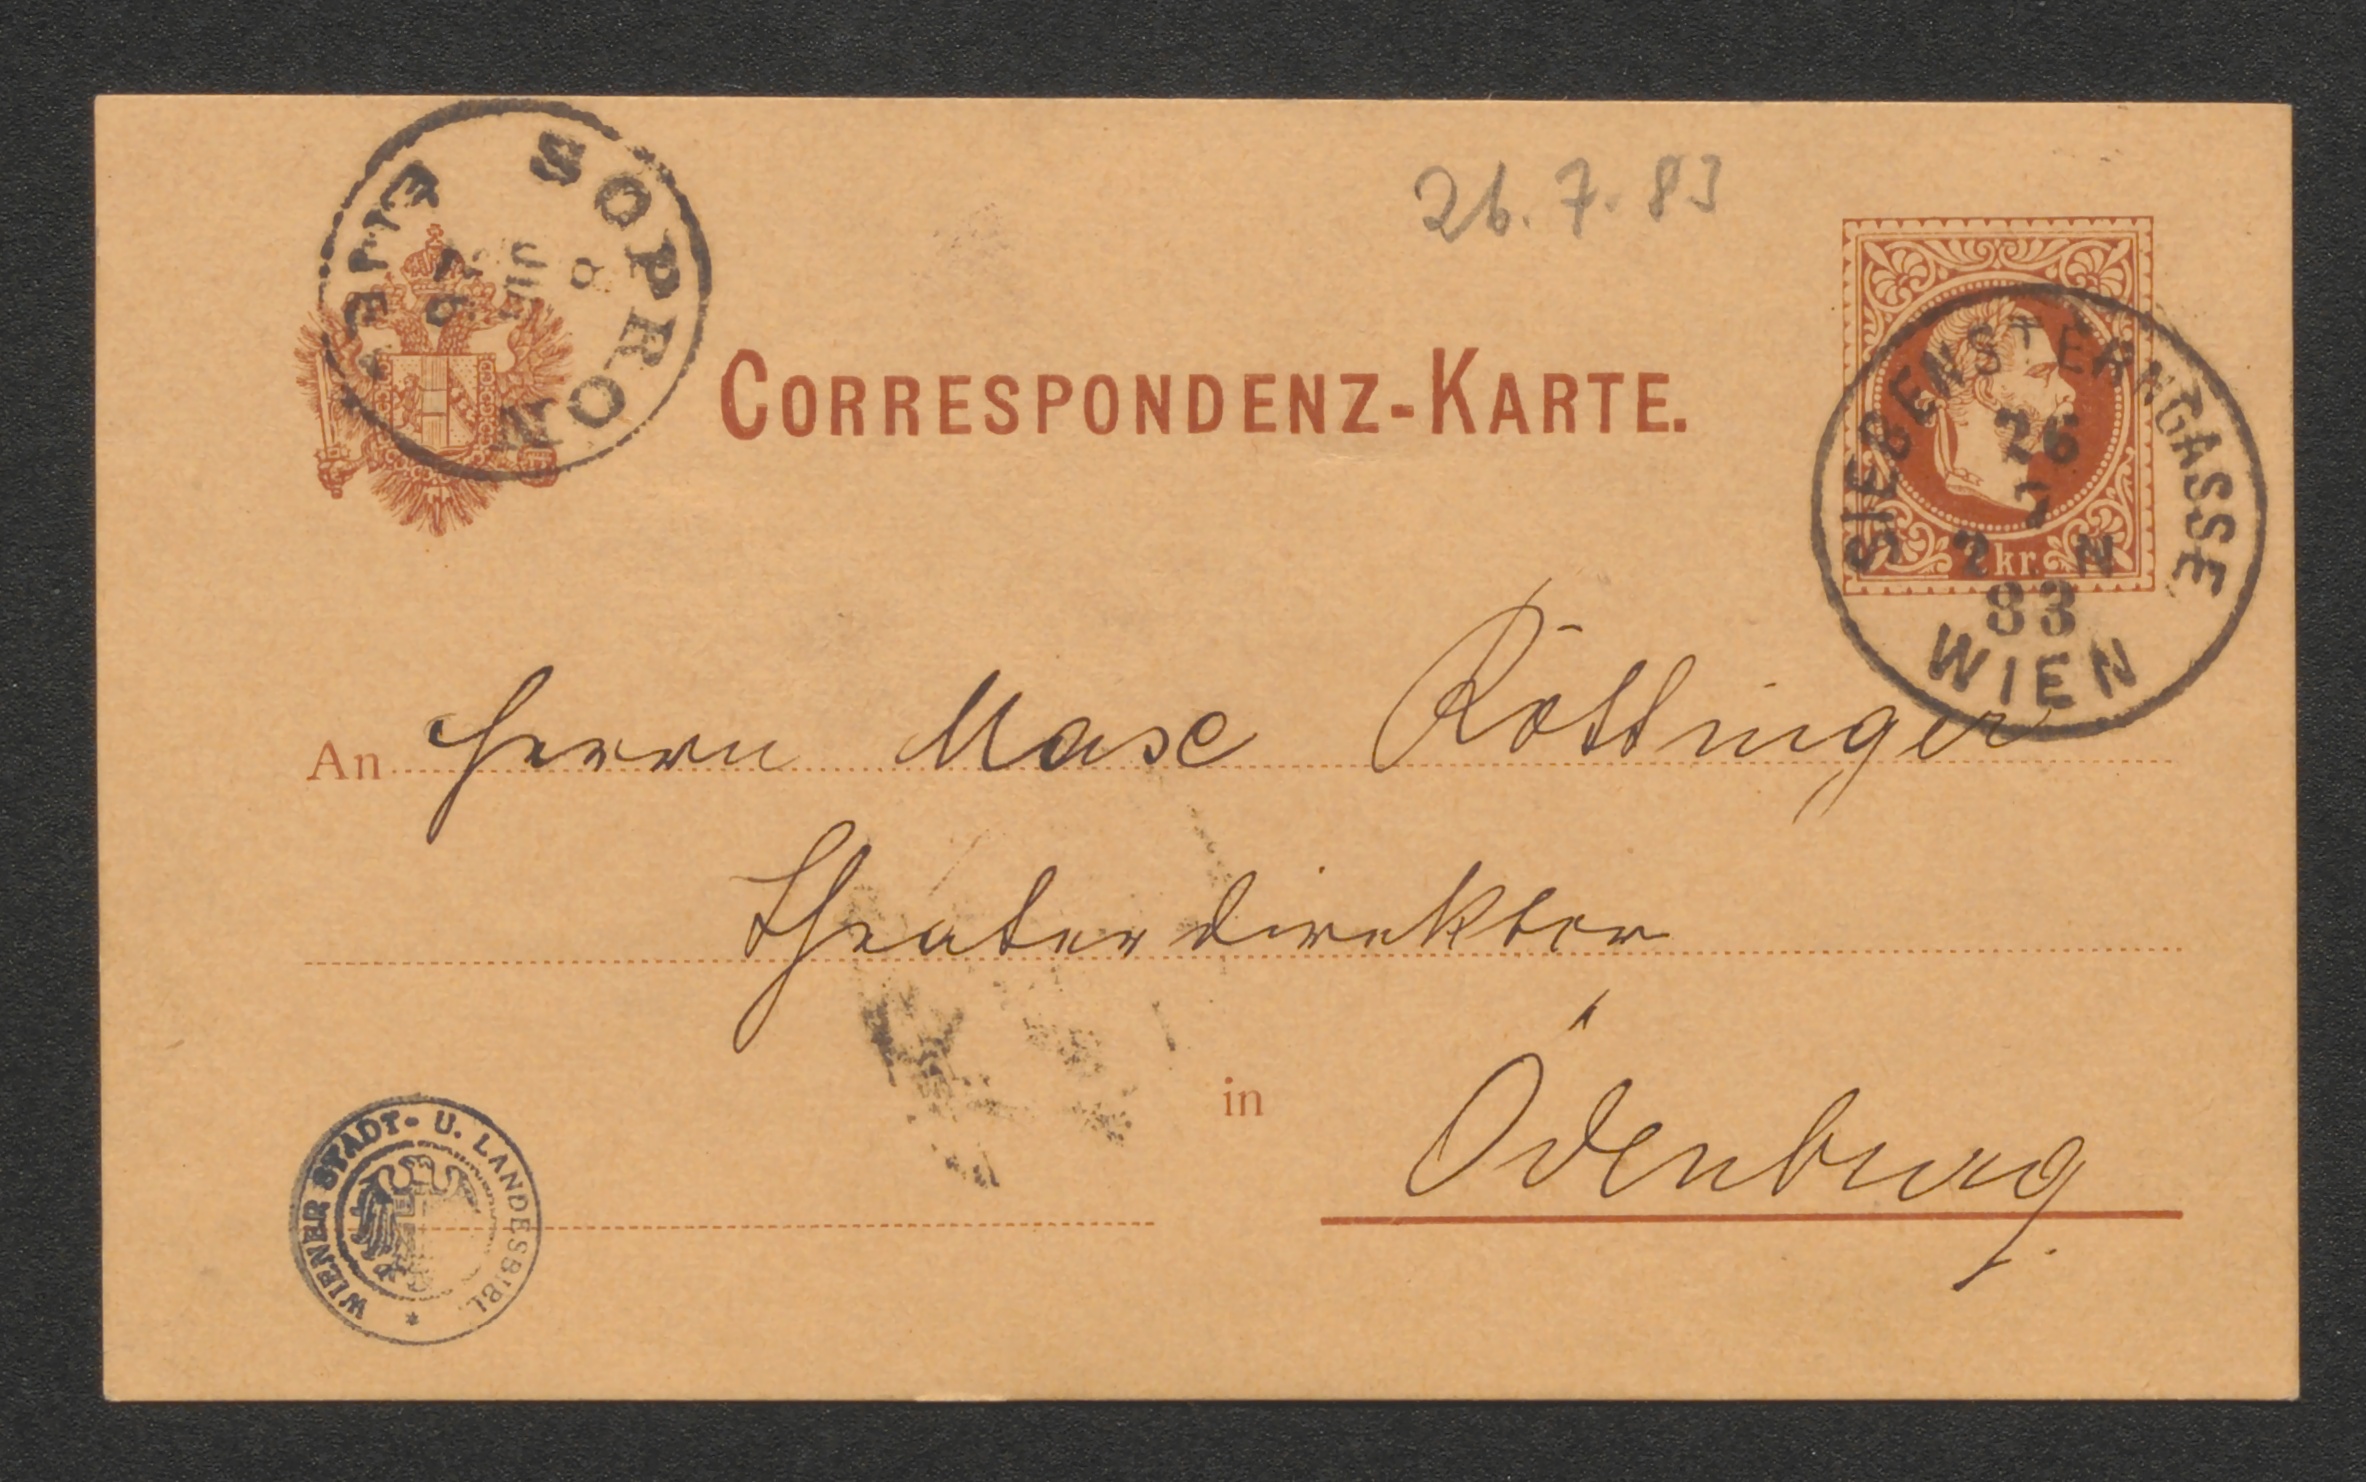 SOPRON
26.7.83
CORRESPONDENZ-KARTE.
SIEBENSTERNGASSE
26
7
2 N
83
WIEN
2 kr.
An Herrn Max Röttinger
Theaterdirektor
in Ödenburg
WIENER STADT- U. LANDESBIBL.